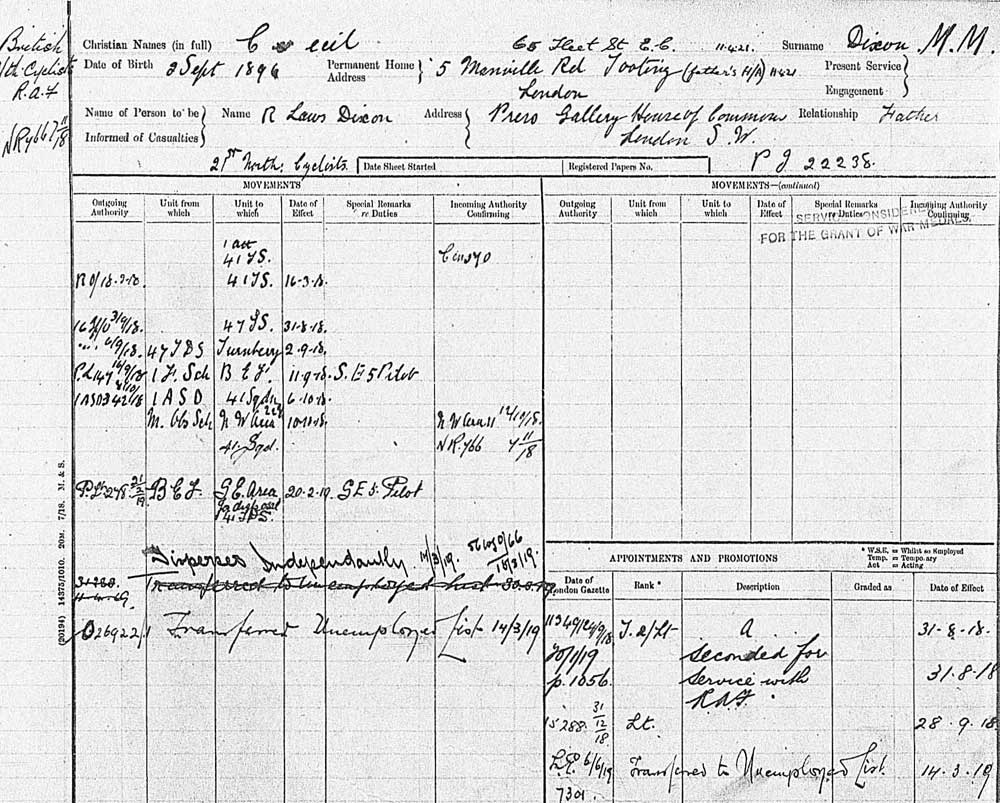 British
Christian Names (in full) Cecil 65 Fleet St E.C. 11.4.21. Surname Dixon M.M.
Cyclists Date of Birth 2 Sept 1896 Permanent Home Address 5 Manville Rd Tooting (father's H/A) 11.4.21 Present Service
R.A.F London Engagement
Name of Person to be Informed of Casualties Name R Laws Dixon Address Press Gallery House of Commons Relationship Father
NR466 7/11/18 London S.W.
21st North. Cyclists. Date Sheet Started Registered Papers No. P J 22238.
MOVEMENTS MOVEMENTS—(continued)
Outgoing Authority Unit from which Unit to which Date of Effect Special Remarks re Duties Incoming Authority Confirming Outgoing Authority Unit from which Unit to which Date of Effect Special Remarks re Duties Incoming Authority Confirming
SERVICE CONSIDERED
FOR THE GRANT OF WAR MEDALS.
1 att
41 TS.
41 TS. 16-3-18.
47 TS. 31-8-18.
6/9/18. 47 TDS Turnberry 2-9-18.
1 F. Sch B E F. 11-9-18. S.E 5 Pilot
1 ASD 41 Sqdn 6-10-18.
M. Obs Sch N W Area 10-11-18. N W Area 12/10/18.
41. Sqd. NR.466 7 11/18
21/2/19 B E F. S.E. Area 20-2-19 S E 5. Pilot
for disposal
Disperses Independantly 14/3/19. 18/3/19.
31288. Transferred to unemployed list
026922/1 Transferred Unemployed List 14/3/19
(20194) 14375/1010. 20M. 7/18. M. & S.
APPOINTMENTS AND PROMOTIONS * W.S.E. = Whilst so Employed
Temp. = Temporary
Act = Acting
Date of London Gazette Rank * Description Graded as Date of Effect
T. 2/Lt A 31-8-18.
20/1/19 Seconded for
p.1056. service with 31-8-18
R.A.F.
15288. 31/12/18 Lt. 28.9.18
6/6/19 Transferred to Unemployed List. 14.3.19
7301.